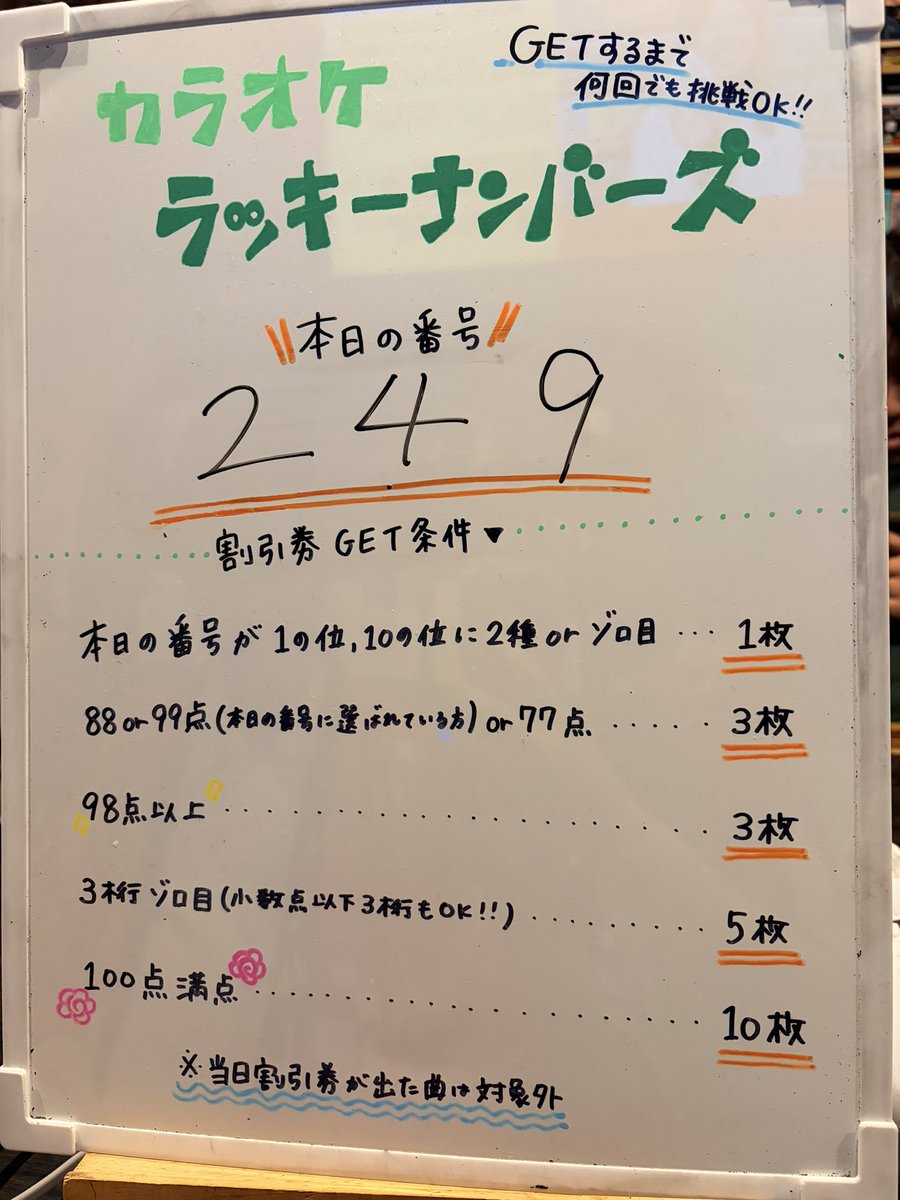 カラオケ
GETするまで
何回でも挑戦OK!!
ラッキーナンバーズ
本日の番号
2 4 9
割引券 GET条件▼
本日の番号が1の位,10の位に2種orゾロ目…1枚
88or99点(本日の番号に選ばれている方)or77点……3枚
98点以上……3枚
3桁ゾロ目(小数点以下3桁もOK!!)……5枚
100点満点……10枚
※当日割引券が出た曲は対象外